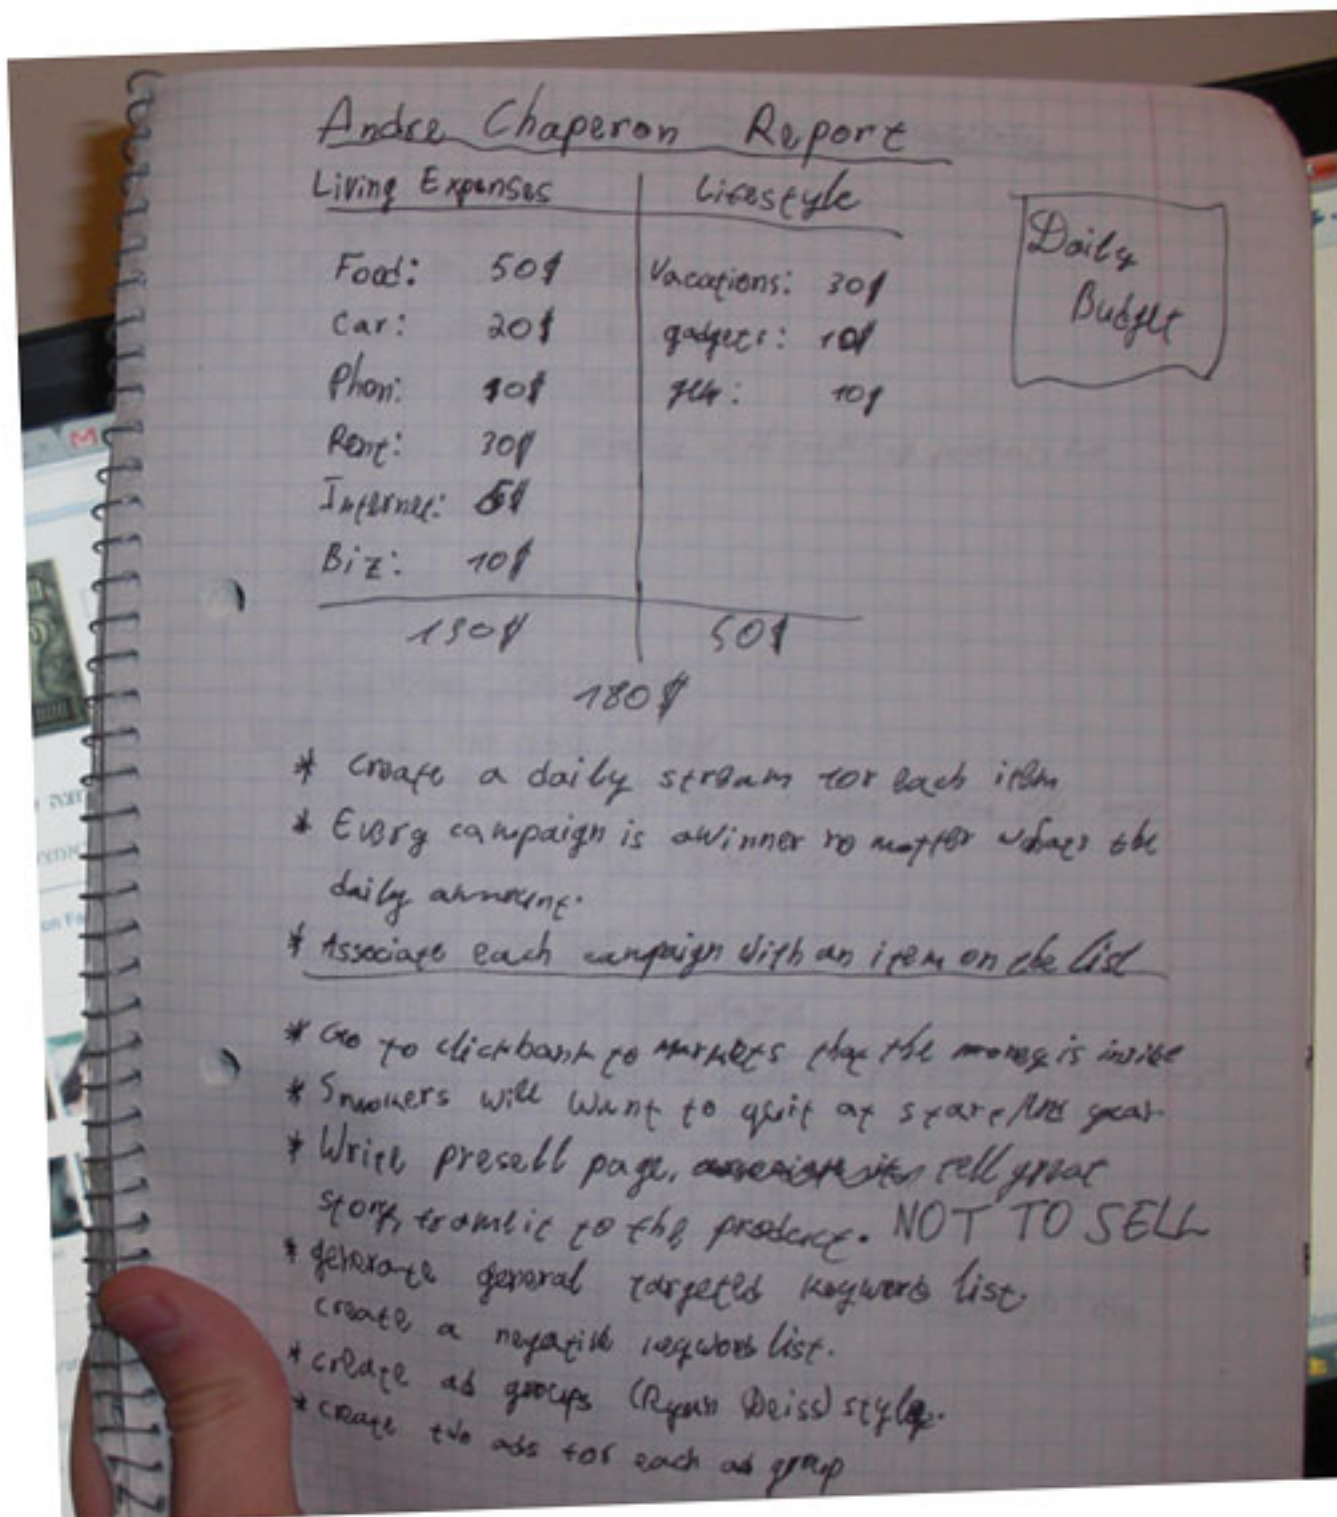 Andre Chaperon Report
Living Expenses Lifestyle
Daily Budget
Food: 50$ Vacations: 30$
Car: 20$ gadgets: 10$
Phon: 10$ 10$
Rent: 30$
Internet: 5$
Biz: 10$
130$ 50$
180$
* Create a daily stream for each item
* Every campaign is a winner no matter whats the
daily amount.
* Associate each campaign with an item on the list
* Go to clickbank to markets that the money is inside
* Smokers will want to quit at start year
* Write presell page, tell great
story, to the product. NOT TO SELL
* generate general targeted keyword list.
create a negative keyword list.
* create ad groups (Ryan Deiss) style.
* create two ads for each ad group